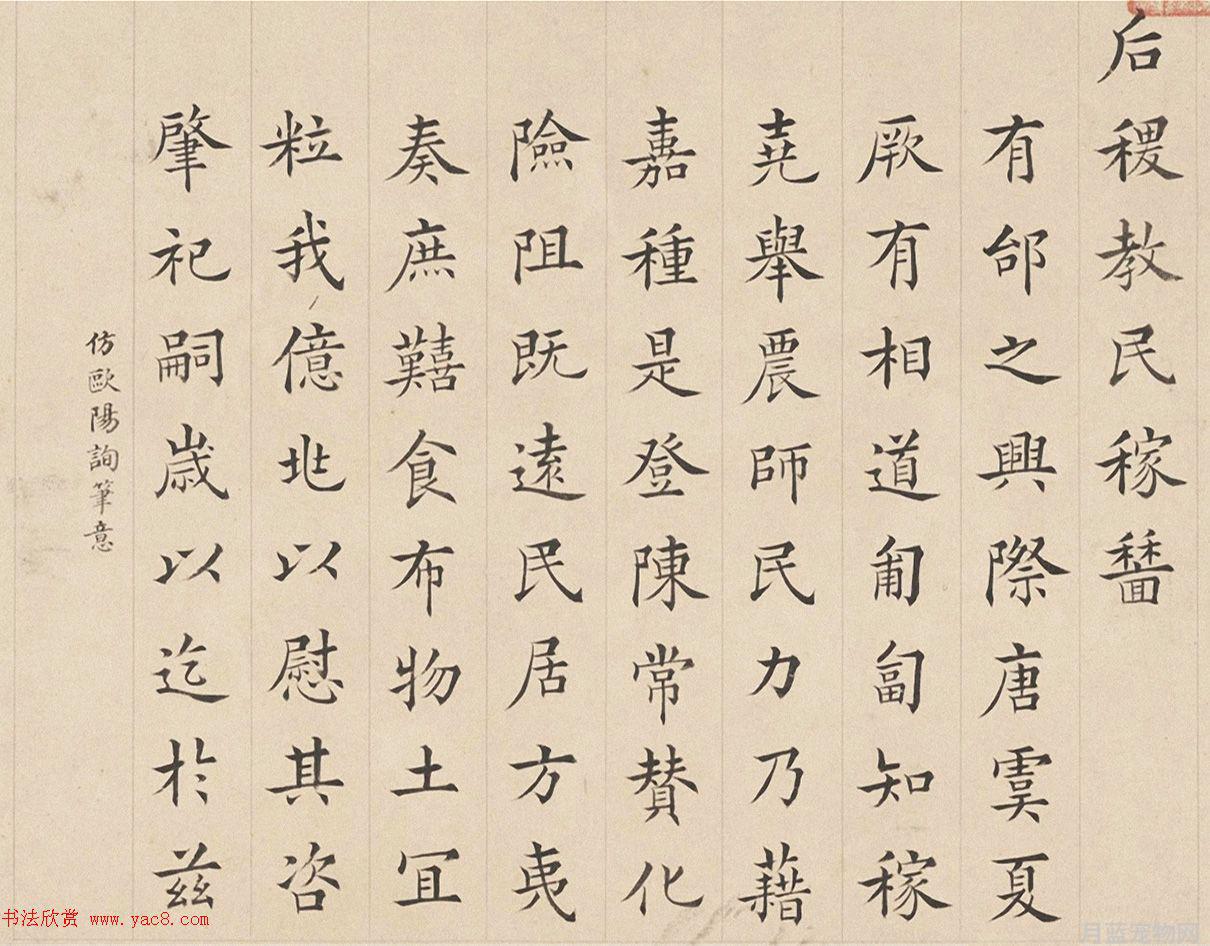 后稷教民稼穡
有邰之興際唐虞夏
厥有相道匍匐知稼
堯舉農師民力乃藉
嘉種是登陳常贊化
險阻既遠民居方夷
奏庶囏食布物土宜
粒我億丠以慰其咨
肇祀嗣歲以迄於茲
仿歐陽詢筆意
书法欣赏 www.yac8.com
月蓝宠物网